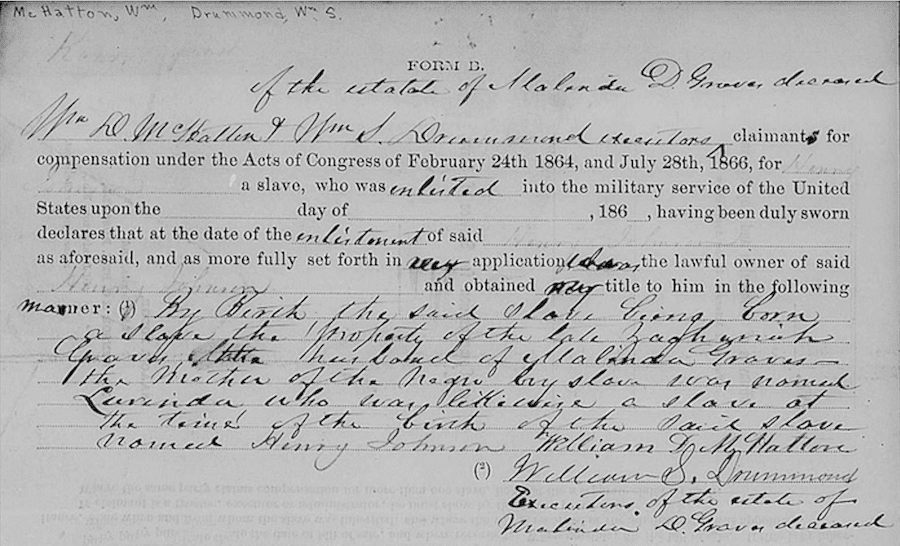 McHatton, Wm, Drummond, Wm S.
FORM B.
of the estate of Malinda D Graves deceased
Wm D McHatton & Wm S. Drummond executors claimants for
compensation under the Acts of Congress of February 24th 1864, and July 28th, 1866, for Henry
Johnson a slave, who was enlisted into the military service of the United
States upon the day of , 186 , having been duly sworn
declares that at the date of the enlistment of said Henry Johnson
as aforesaid, and as more fully set forth in application the lawful owner of said
Henry Johnson and obtained title to him in the following
manner: (1) By Birth the said slave being born
a slave the property of the late
Graves husband of Malinda Graves
the Mother of the Negro slave was named
Lurinda who was likewise a slave at
the time of the birth of the said slave
named Henry Johnson William D. McHatton
(2) William S. Drummond
Executors of the estate of
Malinda D Graves deceased